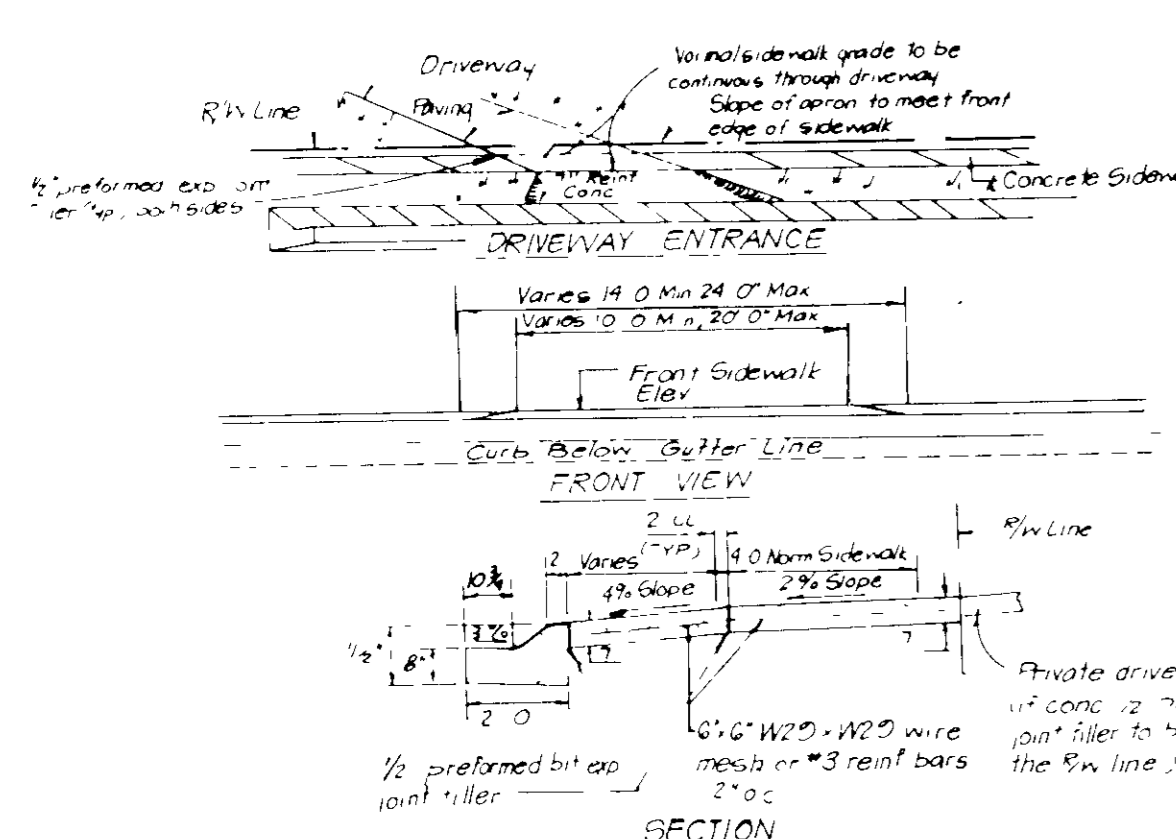 Driveway
Normal sidewalk grade to be
continuous through driveway
Slope of apron to meet front
edge of sidewalk
R/W Line
Paving
1/2" preformed exp
both sides
Reinf
Conc
Concrete Sidew
DRIVEWAY ENTRANCE
Varies 14 0 Min 24 0" Max
Varies 10 0 M n, 20' 0" Max
Front Sidewalk
Elev
Curb Below Gutter Line
FRONT VIEW
R/W Line
2 Varies (TYP) 4 0 Norm Sidewalk
10 3/4
4% Slope 2% Slope
8"
2 0
Private drive
conc
joint filler to
the R/W line
6"x6" W29 x W29 wire
mesh or #3 reinf bars
2" o c
1/2 preformed bit exp
joint filler
SECTION